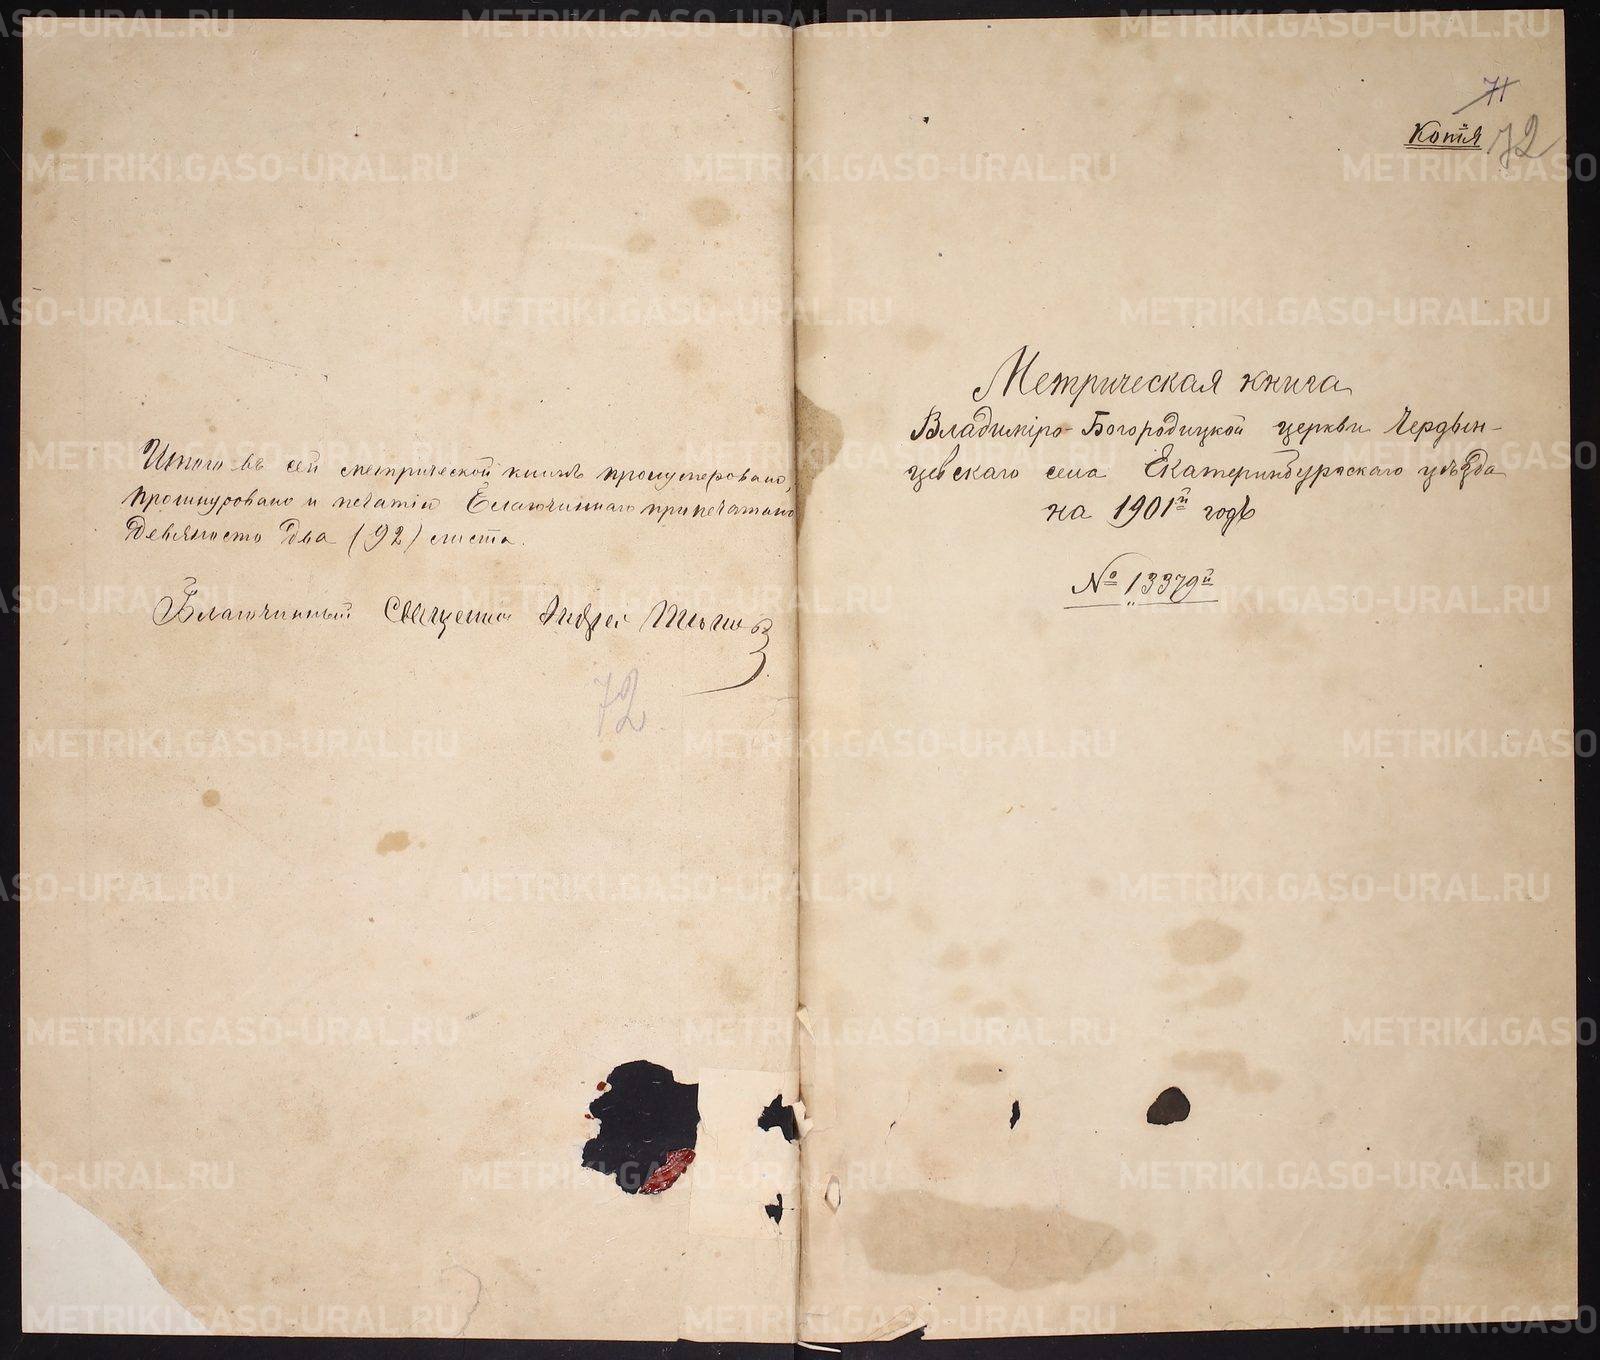 Итого въ сей метрической книгѣ пронумеровано,
прошнуровано и печатію Благочиннаго припечатано
девяносто два (92) листа.
Благочинный Священник Андрей
72
71
Копія 72
Метрическая книга
Владиміро-Богородицкой церкви Чердын-
цевскаго села Екатеринбургскаго уѣзда
на 1901й годъ
№ 13379й
METRIKI.GASO-URAL.RU